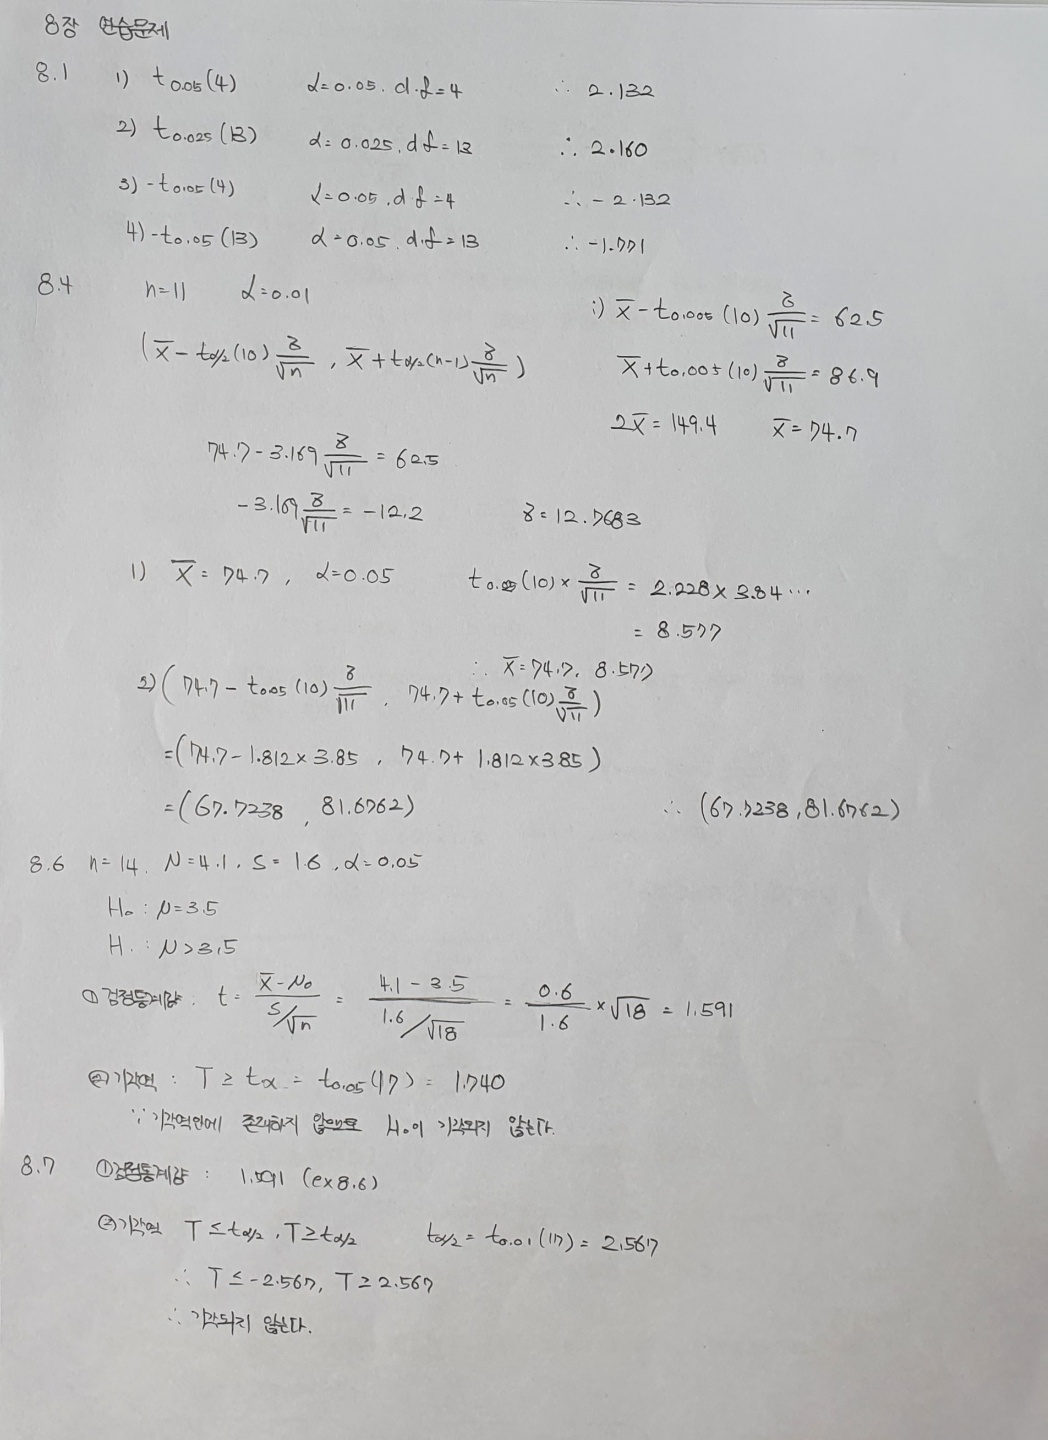 8장 연습문제
8.1 1) t0.05(4) α=0.05. d.f=4 ∴ 2.132
2) t0.025(13) α=0.025, d f=13 ∴ 2.160
3) -t0.05(4) α=0.05, d f=4 ∴ -2.132
4) -t0.05(13) α=0.05. d.f=13 ∴ -1.771
8.4 n=11 α=0.01
( x̄ - tα/2(10) 8/√n , x̄ + tα/2(n-1) 8/√n )
i) x̄ - t0.005(10) 8/√11 = 62.5
x̄ + t0.005(10) 8/√11 = 86.9
2x̄ = 149.4 x̄ = 74.7
74.7 - 3.169 8/√11 = 62.5
-3.169 8/√11 = -12.2 8 = 12.7683
1) x̄ = 74.7, α=0.05 t0.025(10) × 8/√11 = 2.228 × 3.84 ⋯
= 8.577
∴ x̄ = 74.7, 8.577
2) ( 74.7 - t0.05(10) 8/√11 , 74.7 + t0.05(10) 8/√11 )
= (74.7 - 1.812 × 3.85 , 74.7 + 1.812 × 3.85)
= (67.7238 , 81.6762) ∴ (67.7238, 81.6762)
8.6 n= 14. μ=4.1, S= 1.6, α=0.05
H0 : μ=3.5
H1 : μ>3.5
① 검정통계량. t = (x̄-μ0)/(S/√n) = (4.1-3.5)/(1.6/√18) = 0.6/1.6 × √18 = 1.591
② 기각역 : T ≥ tα = t0.05(17) = 1.740
∵ 기각역안에 존재하지 않으므로 H0이 기각되지 않는다.
8.7 ① 검정통계량 : 1.591 (ex 8.6)
② 기각역 T ≤ tα/2, T ≥ tα/2 tα/2 = t0.01(17) = 2.567
∴ T ≤ -2.567, T ≥ 2.567
∴ 기각되지 않는다.